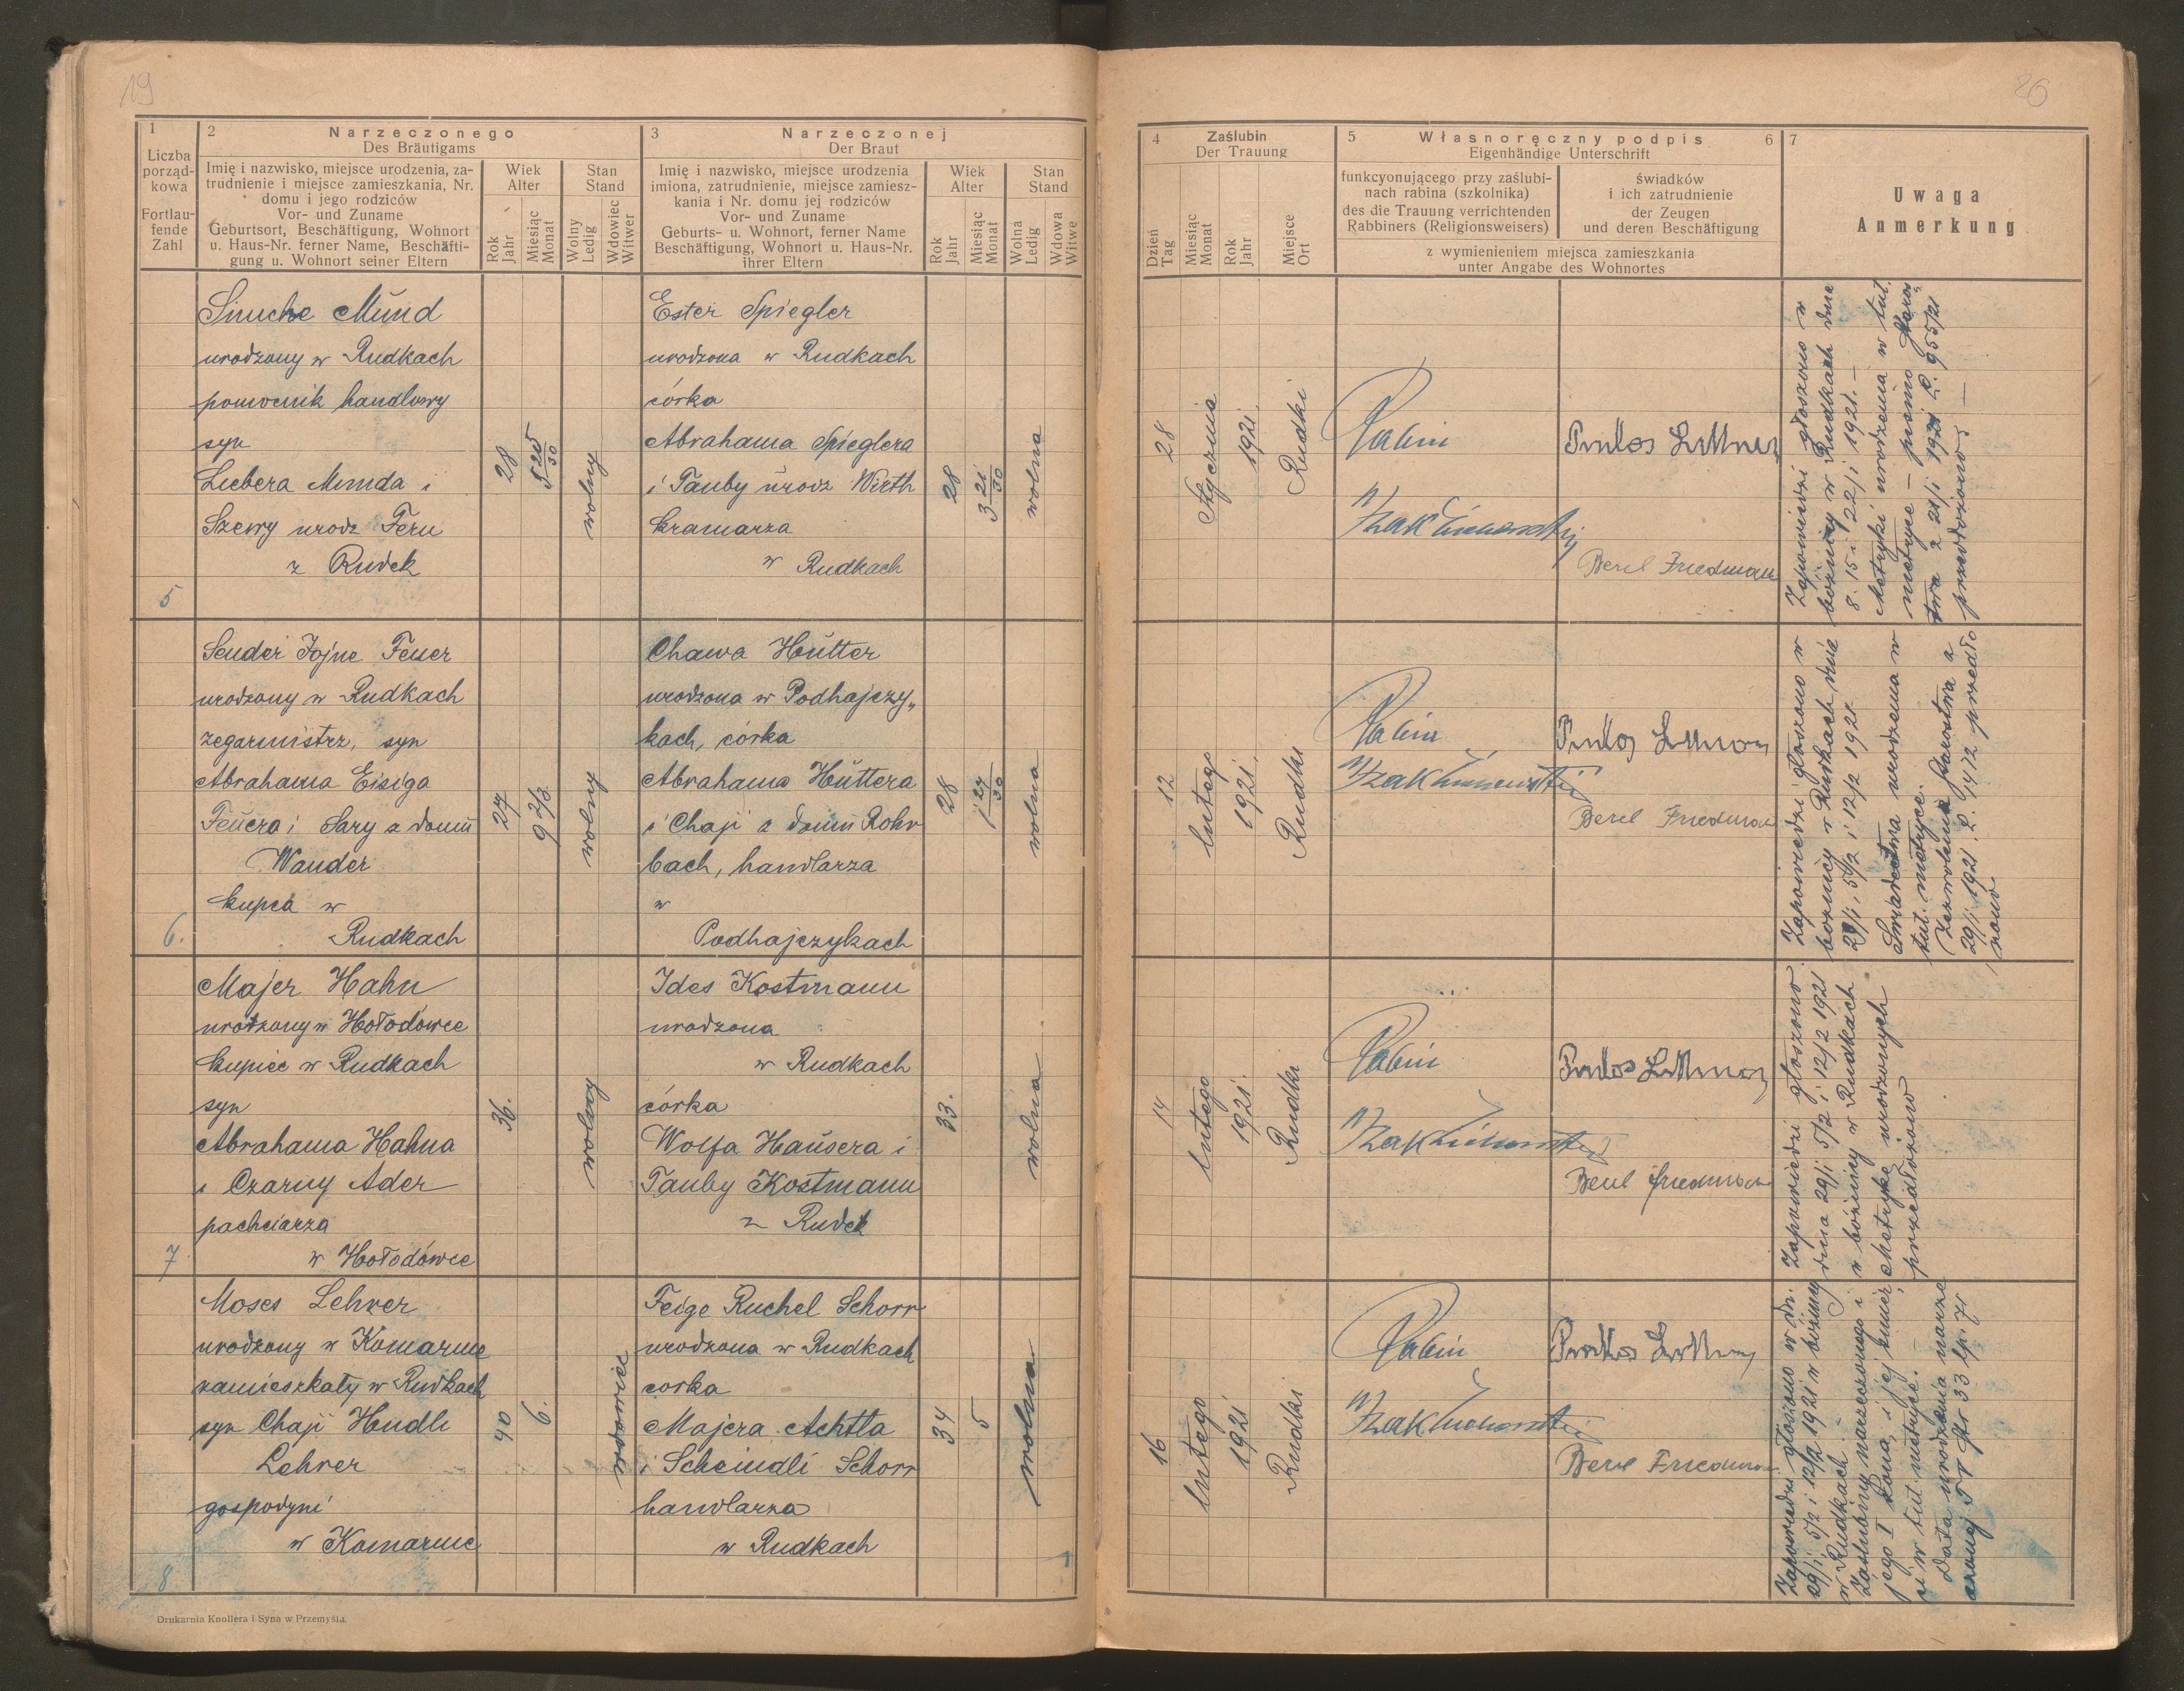 19
1
Liczba
porząd-
kowa
Fortlau-
fende
Zahl
2
Narzeczonego
Des Bräutigams
Imię i nazwisko, miejsce urodzenia, za-
trudnienie i miejsce zamieszkania, Nr.
domu i jego rodziców
Vor- und Zuname
Geburtsort, Beschäftigung, Wohnort
u. Haus-Nr. ferner Name, Beschäfti-
gung u. Wohnort seiner Eltern
Wiek
Alter
Rok
Jahr
Miesiąc
Monat
Stan
Stand
Wolny
Ledig
Wdowiec
Witwer
3
Narzeczonej
Der Braut
Imię i nazwisko, miejsce urodzenia
imiona, zatrudnienie, miejsce zamiesz-
kania i Nr. domu jej rodziców
Vor- und Zuname
Geburts- u. Wohnort, ferner Name
Beschäftigung, Wohnort u. Haus-Nr.
ihrer Eltern
Wiek
Alter
Rok
Jahr
Miesiąc
Monat
Stan
Stand
Wolna
Ledig
Wdowa
Witwe
5
Simche Mund
urodzony w Rudkach
pomocnik handlowy
syn
Liebera Munda i
Szewy urodz Fern
z Rudek
28
5 25/30
wolny
Ester Spiegler
urodzona w Rudkach
córka
Abrahama Spieglera
i Tauby urodz Wirth
kramarza
w Rudkach
28
3 21/30
wolna
6.
Sender Jojne Feuer
urodzony w Rudkach
zegarmistrz, syn
Abrahama Eisiga
Feuera i Sary z domu
Wander
kupca w
Rudkach
27
9 2/3
wolny
Chawa Hütter
urodzona w Podhajczy„
kach, córka
Abrahama Hüttera
i Chaji z domu Rohr
bach, handlarza
w
Podhajczykach
28
1 27/30
wolna
7
Majer Hahn
urodzony w Hołodówce
kupiec w Rudkach
syn
Abrahama Hahna
i Czarny Ader
pachciarza
w Hołodówce
36.
wolny
Ides Kostmann
urodzona
w Rudkach
córka
Wolfa Hausera i
Tauby Kostmann
z Rudek
33.
wolna
8
Moses Lehrer
urodzony w Komarnie
zamieszkały w Rudkach
syn Chaji Hendli
Lehrer
gospodyni
w Komarnie
40
6.
wdowiec
Feige Ruchel Schorr
urodzona w Rudkach
corka
Majera Achtla
i Scheindli Schorr
handlarza
w Rudkach
34
5
wolna
Drukarnia Knollera i Syna w Przemyślu.
26
4
Zaślubin
Der Trauung
Dzień
Tag
Miesiąc
Monat
Rok
Jahr
Miejsce
Ort
5
Własnoręczny podpis
6
Eigenhändige Unterschrift
funkcyonującego przy zaślubi-
nach rabina (szkolnika)
des die Trauung verrichtenden
Rabbiners (Religionsweisers)
świadków
i ich zatrudnienie
der Zeugen
und deren Beschäftigung
z wymienieniem miejsca zamieszkania
unter Angabe des Wohnortes
7
Uwaga
Anmerkung
28
Stycznia
1921.
Rudki
Rabin
Berel Friedman
Zapowiedzi głoszono w
bóżnicy w Rudkach dnia
8. 15 i 22/i 1921. —
Metryki urodzenia w tut.
metryce — pismo Staros„
twa z 21/i 1921 L. 955/21
przedłożono —
12
lutego
1921.
Rudki
Rabin
Berel Friedman
Zapowiedzi głoszono w
bożnicy w Rudkach dnia
29/i, 5/2 i 12/2 1921.
Świadectwa urodzenia w
tut. metryce.
Zezwolenia Starostwa z
29/i 1921 L. 1472 przedło
żono
14
lutego
1921.
Rudki
Rabin
Berel Friedman
Zapowiedzi głoszono
dnia 29/i 5/2 i 12/2 1921
w bóżnicy w Rudkach
Metrykę urodzonych
przedłożono
16
lutego
1921
Rudki
Rabin
Berel Friedman
Zapowiedzi głoszono w dn.
29/i 5/2 i 12/2 1921 w bóżnicy
w Rudkach —